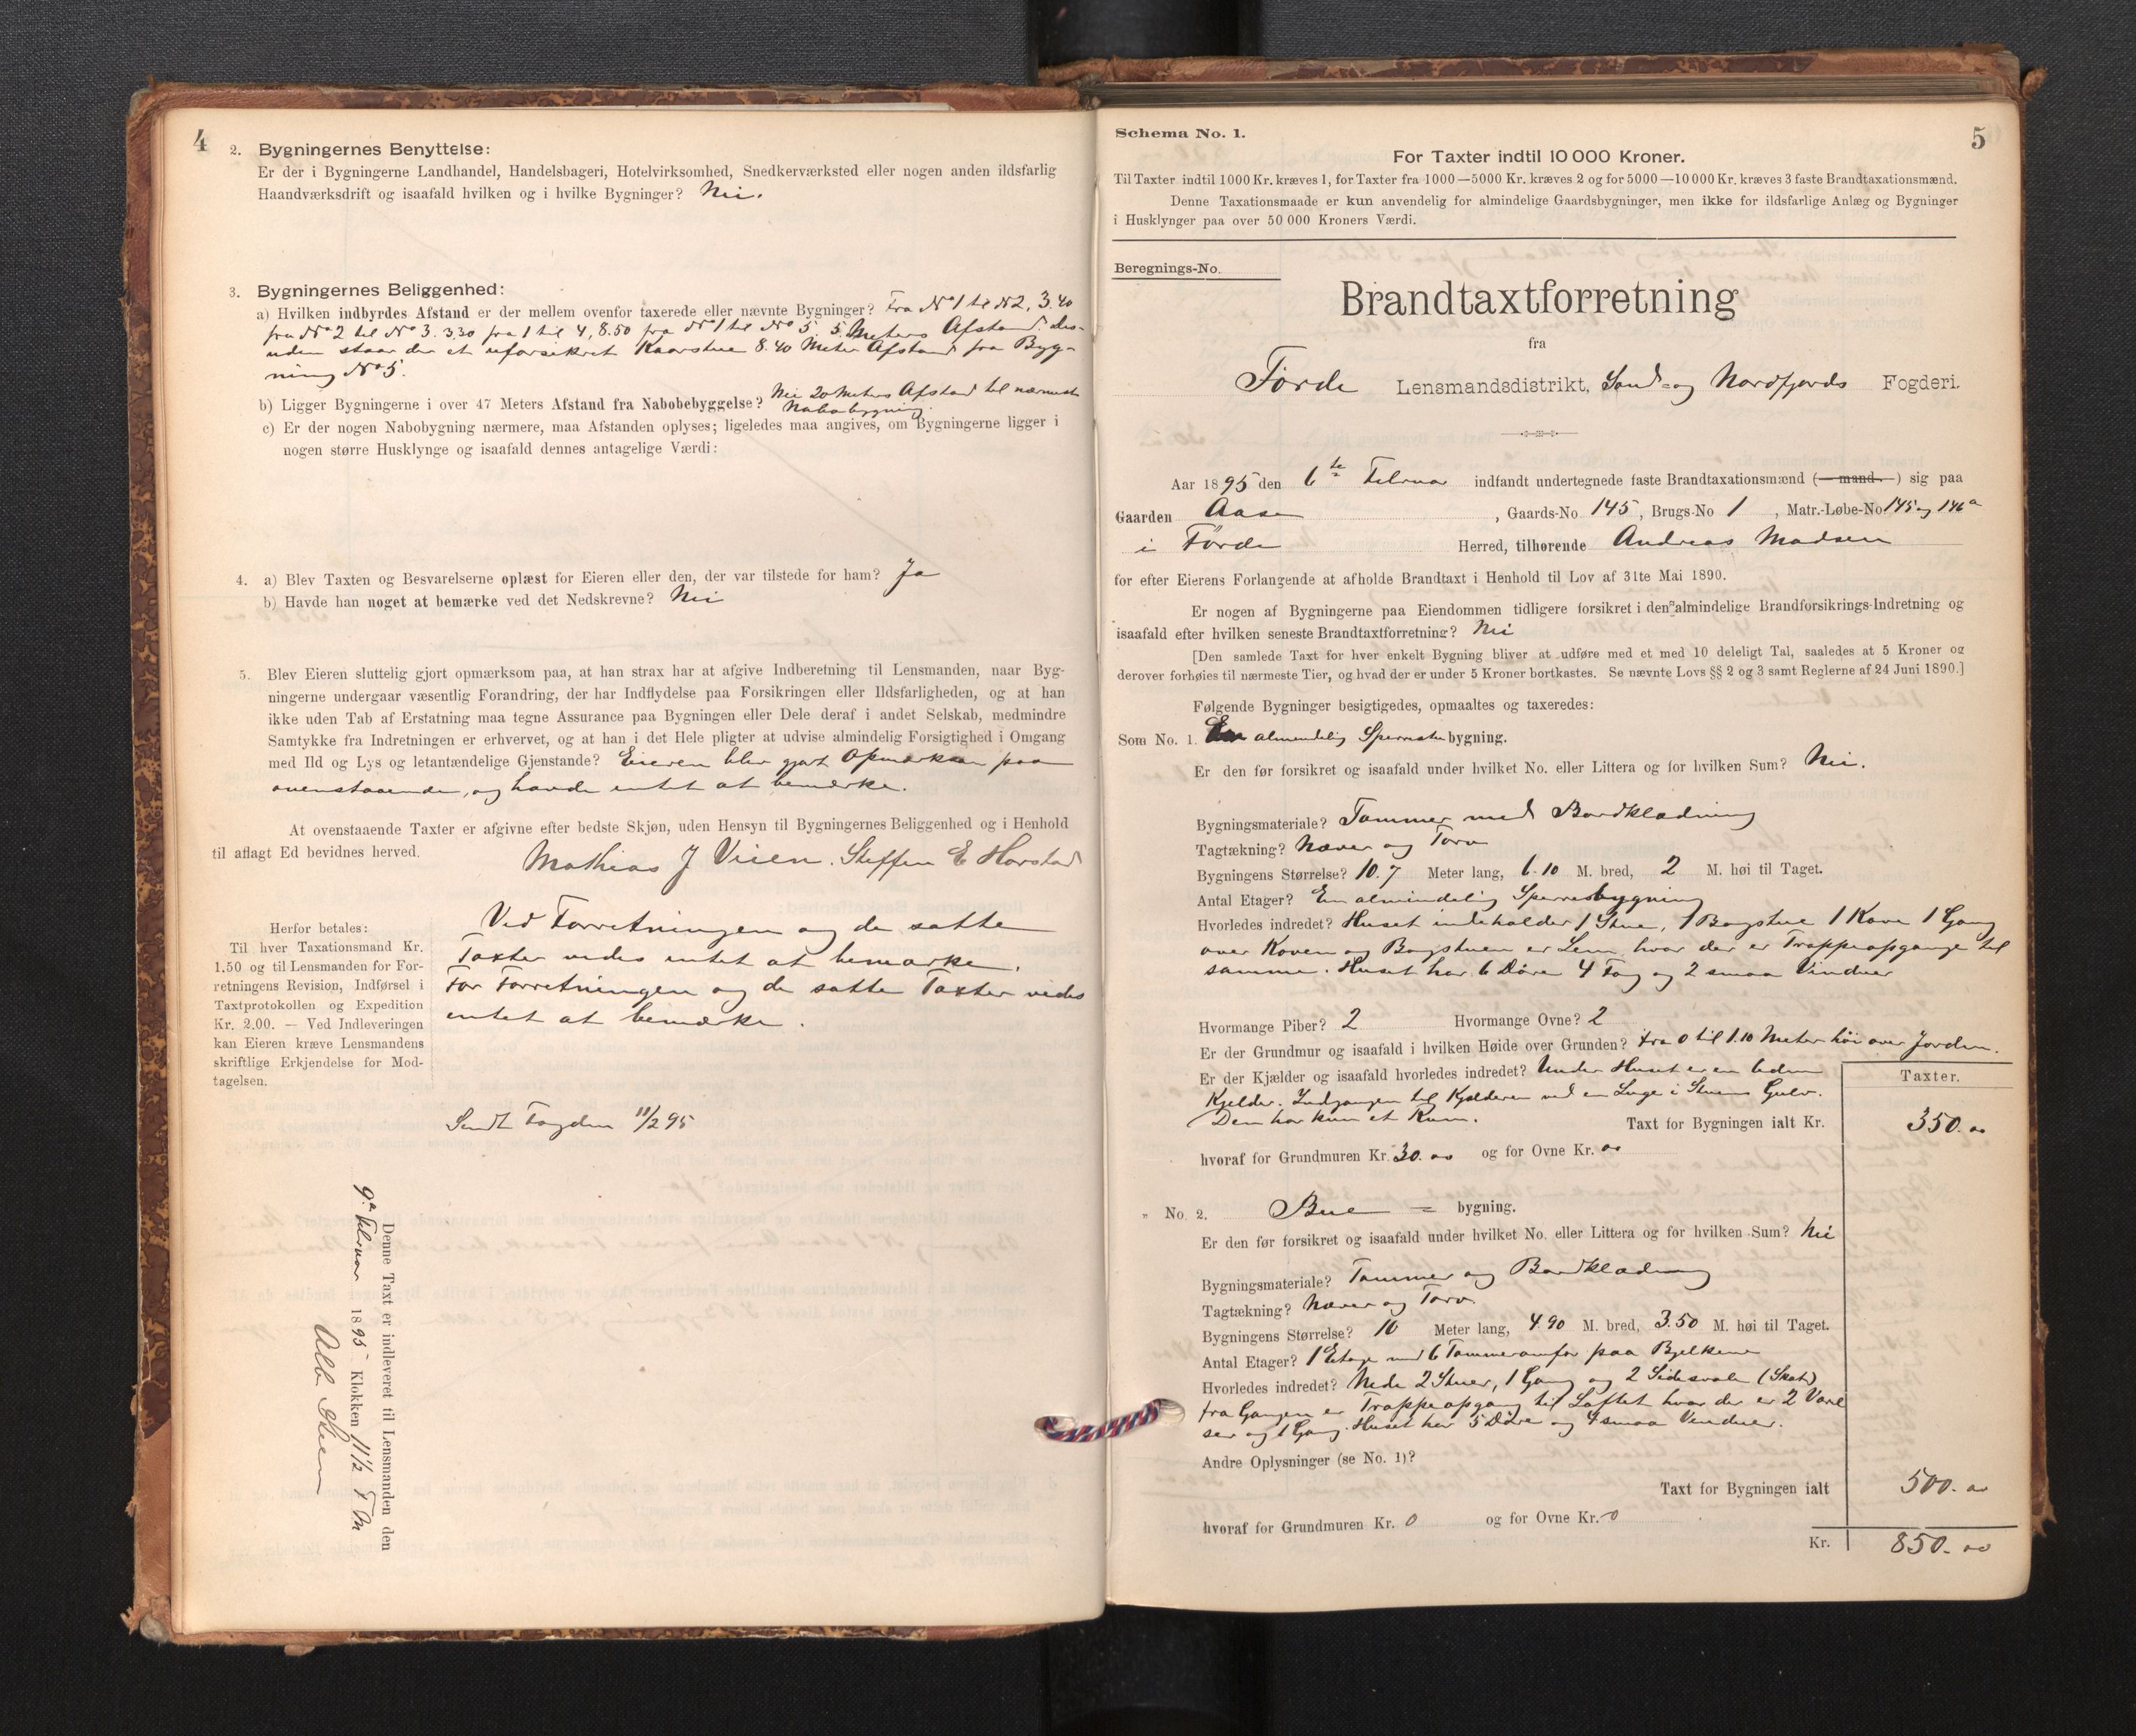 4
2. Bygningernes Benyttelse:
Er der i Bygningerne Landhandel, Handelsbageri, Hotelvirksomhed, Snedkerværksted eller nogen anden ildsfarlig
Haandværksdrift og isaafald hvilken og i hvilke Bygninger? Nei.
3. Bygningernes Beliggenhed:
a) Hvilken indbyrdes Afstand er der mellem ovenfor taxerede eller nævnte Bygninger? Fra No 1 til No 2. 3.40
fra No 2 til No 3. 3.30 fra 1 til 4, 8.50 fra No 1 til No 5. 5 Meters Afstand. des-
uden staar der et uforsikret Kaarstue 8.40 Meter Afstand fra Byg-
ning No 5.
b) Ligger Bygningerne i over 47 Meters Afstand fra Nabobebyggelse? Nei 20 Meters Afstand til nærmeste
Nabobygning.
c) Er der nogen Nabobygning nærmere, maa Afstanden oplyses; ligeledes maa angives, om Bygningerne ligger i
nogen større Husklynge og isaafald dennes antagelige Værdi:
4. a) Blev Taxten og Besvarelserne oplæst for Eieren eller den, der var tilstede for ham? Ja
b) Havde han noget at bemærke ved det Nedskrevne? Nei
5. Blev Eieren sluttelig gjort opmærksom paa, at han strax har at afgive Indberetning til Lensmanden, naar Byg-
ningerne undergaar væsentlig Forandring, der har Indflydelse paa Forsikringen eller Ildsfarligheden, og at han
ikke uden Tab af Erstatning maa tegne Assurance paa Bygningen eller Dele deraf i andet Selskab, medmindre
Samtykke fra Indretningen er erhvervet, og at han i det Hele pligter at udvise almindelig Forsigtighed i Omgang
med Ild og Lys og letantændelige Gjenstande? Eieren blev gjort Opmærksom paa
ovenstaaende, og havde intet at bemærke.
At ovenstaaende Taxter er afgivne efter bedste Skjøn, uden Hensyn til Bygningernes Beliggenhed og i Henhold
til aflagt Ed bevidnes herved.
Mathias J Vieen. Steffen E Horstad
Herfor betales:
Til hver Taxationsmand Kr.
1.50 og til Lensmanden for For-
retningens Revision, Indførsel i
Taxtprotokollen og Expedition
Kr. 2.00. — Ved Indleveringen
kan Eieren kræve Lensmandens
skriftlige Erkjendelse for Mod-
tagelsen.
Ved Forretningen og de satte
Taxter vides intet at bemærke.
For Forretningen og de satte Taxter vides
intet at bemærke.
Sendt Fogden 11/2 95
Denne Taxt er indleveret til Lensmanden den
9de Februar 1895 Klokken 11 1/2 F M
5
Schema No. 1.
For Taxter indtil 10 000 Kroner.
Til Taxter indtil 1000 Kr. kræves 1, for Taxter fra 1000—5000 Kr. kræves 2 og for 5000—10 000 Kr. kræves 3 faste Brandtaxationsmænd.
Denne Taxationsmaade er kun anvendelig for almindelige Gaardsbygninger, men ikke for ildsfarlige Anlæg og Bygninger
i Husklynger paa over 50 000 Kroners Værdi.
Beregnings-No.
Brandtaxtforretning
fra
Førde Lensmandsdistrikt, Sønd- og Nordfjords Fogderi.
Aar 1895 den 6te Februar indfandt undertegnede faste Brandtaxationsmænd (mand) sig paa
Gaarden Aasen, Gaards-No 145, Brugs-No 1, Matr.-Løbe-No 145 og 146a
i Førde Herred, tilhørende Andreas Madsen
for efter Eierens Forlangende at afholde Brandtaxt i Henhold til Lov af 31te Mai 1890.
Er nogen af Bygningerne paa Eiendommen tidligere forsikret i den almindelige Brandforsikrings-Indretning og
isaafald efter hvilken seneste Brandtaxtforretning? Nei
[Den samlede Taxt for hver enkelt Bygning bliver at udføre med et med 10 deleligt Tal, saaledes at 5 Kroner og
derover forhøies til nærmeste Tier, og hvad der er under 5 Kroner bortkastes. Se nævnte Lovs §§ 2 og 3 samt Reglerne af 24 Juni 1890.]
Følgende Bygninger besigtigedes, opmaaltes og taxeredes:
Som No. 1. En almindelig Sperrestuebygning.
Er den før forsikret og isaafald under hvilket No. eller Littera og for hvilken Sum? Nei.
Bygningsmateriale? Tømmer med Bordklædning
Tagtækning? Næver og Torv
Bygningens Størrelse? 10.7 Meter lang, 6.10 M. bred, 2 M. høi til Taget.
Antal Etager? En almindelig Sperrebygning
Hvorledes indredet? Huset indeholder 1 Stue, 1 Bagstue 1 Kove 1 Gang
over Koven og Bagstuen er Lem, hvor der er Trappeopgange til
samme. Huset har 6 Døre 4 Fag og 2 smaa Vinduer
Hvormange Piber? 2 Hvormange Ovne? 2
Er der Grundmur og isaafald i hvilken Høide over Grunden? Fra 0 til 1.10 Meter høi over Jorden.
Er der Kjælder og isaafald hvorledes indredet? Under Huset er en liden
Kjelder. Indgangen til Kjelderen ved en Luge i Stuens Gulv.
Den har kun et Rum.
Taxter.
Taxt for Bygningen ialt Kr. 350.00
hvoraf for Grundmuren Kr. 30.00 og for Ovne Kr. 00
" No. 2. Bue = bygning.
Er den før forsikret og isaafald under hvilket No. eller Littera og for hvilken Sum? Nei
Bygningsmateriale? Tømmer og Bordklædning
Tagtækning? Næver og Torv.
Bygningens Størrelse? 10 Meter lang, 4.90 M. bred, 3.50 M. høi til Taget.
Antal Etager? 1 Etage med 6 Tømmeromfar paa Bjelkene
Hvorledes indredet? Nede 2 Stuer, 1 Gang og 2 Sidesvale (Skot)
fra Gangen er Trappeopgang til Loftet hvor der er 2 Værel
ser og 1 Gang. Huset har 5 Døre og 4 smaa Vinduer.
Andre Oplysninger (se No. 1)?
Taxt for Bygningen ialt 500.00
hvoraf for Grundmuren Kr. 0 og for Ovne Kr. 0
Kr. 850.00